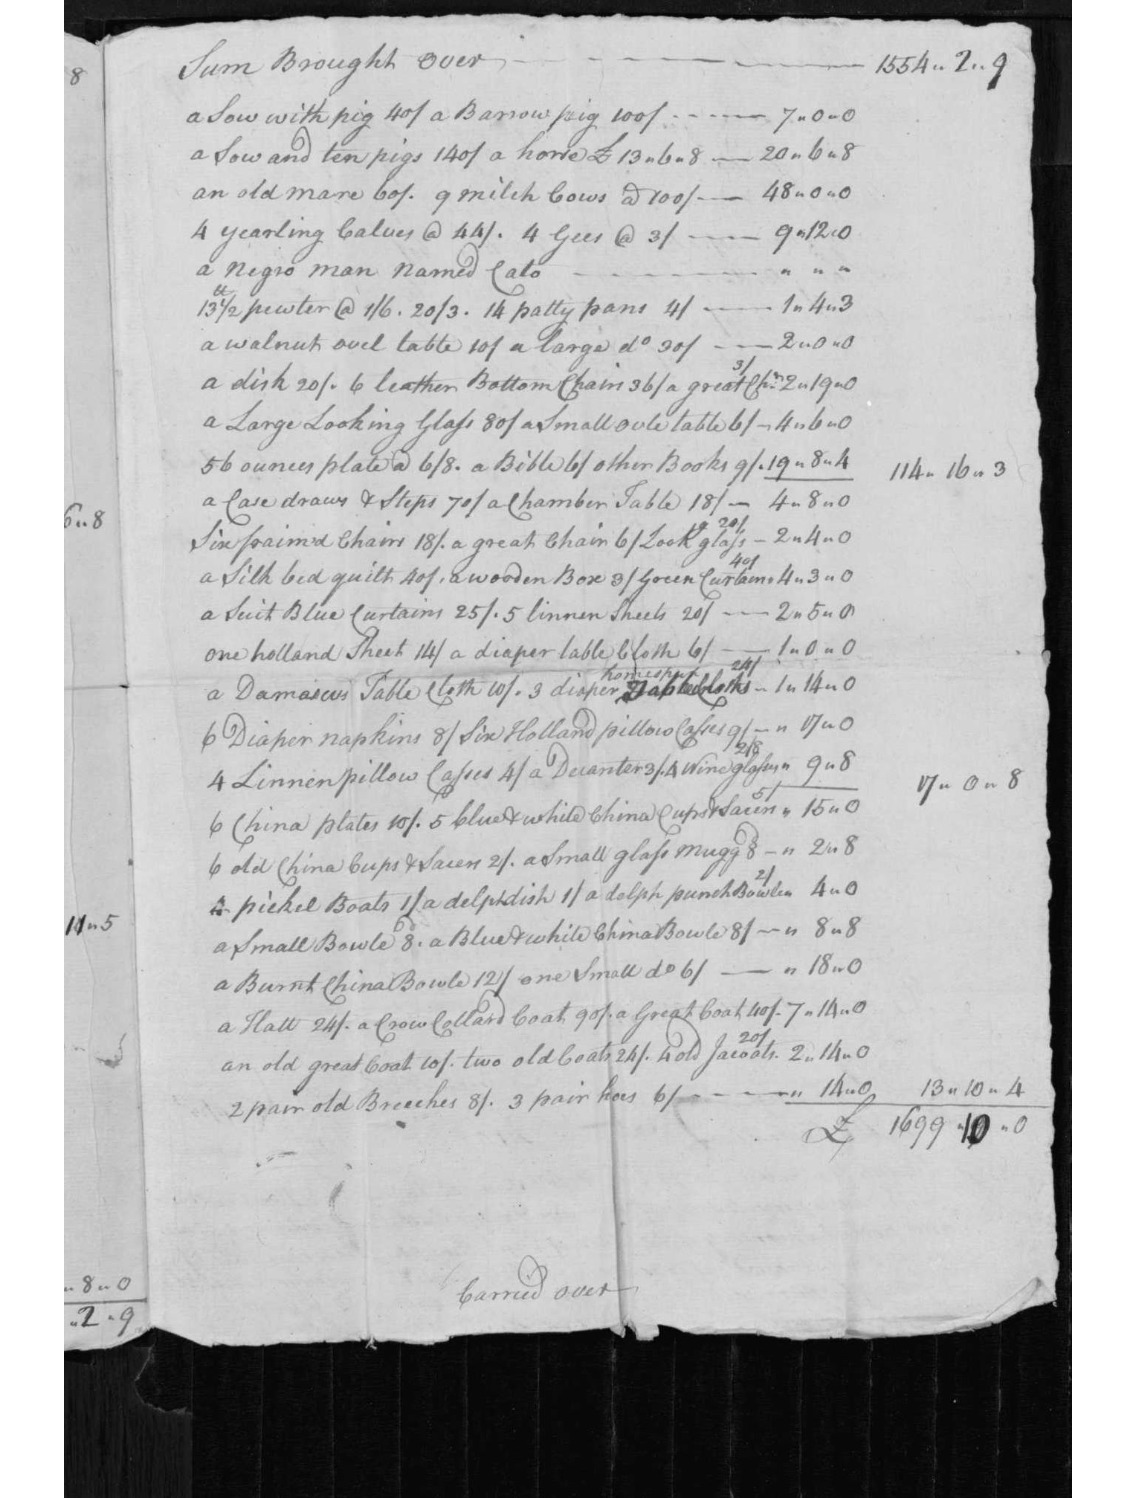 8
6 " 8
11 " 5
" 8 " 0
" 2 " 9
Sum Brought over 1554 " 2 " 9
a Sow with pig 40/ a Barrow pig 100/ 7 " 0 " 0
a Sow and ten pigs 140/ a horse £ 13 " 6 " 8 20 " 6 " 8
an old mare 60/. 9 milch Cows @ 100/ 48 " 0 " 0
4 yearling Calves @ 44/. 4 Gees @ 3/ 9 " 12 " 0
a Negro man named Cato " " "
13 1/2 lb pewter @ 1/6. 20/3. 14 patty pans 4/ 1 " 4 " 3
a walnut ovel table 10/ a large do 30/ 2 " 0 " 0
a dish 20/. 6 leather Bottom Chairs 36/ a great Chr 3/ 2 " 19 " 0
a Large Looking Glass 80/ a Small ovle table 6/ 4 " 6 " 0
56 ounces plate @ 6/8. a Bible 6/ other Books 9/. 19 " 8 " 4 114 " 16 " 3
a Case draws & Steps 70/ a Chamber Table 18/ 4 " 8 " 0
Six fraimd Chairs 18/. a great Chair 6/ Look g glass 20/ 2 " 4 " 0
a Silk bed quilt 40/. a wooden Box 3/ Green Curtains 40/ 4 " 3 " 0
a Suit Blue Curtains 25/. 5 linnen Sheets 20/ 2 " 5 " 0
one holland Sheet 14/ a diaper table Cloth 6/ 1 " 0 " 0
a Damascus Table Cloth 10/. 3 diaper homespun Table Cloths 24/ 1 " 14 " 0
6 Diaper napkins 8/ Six Holland pillow Casses 9/ " 17 " 0
4 Linnen pillow Casses 4/ a Decanter 3/. 4 Wine glasses 2/8 " 9 " 8 17 " 0 " 8
6 China plates 10/. 5 blue & white China Cups & Sacers 5/ " 15 " 0
6 old China Cups & Sacers 2/. a Small glass mugg 8d " 2 " 8
2 pickel Boats 1/ a delph dish 1/ a delph punch Bowle 2/ " 4 " 0
a Small Bowle 8d. a Blue & white China Bowle 8/ " 8 " 8
a Burnt China Bowle 12/ one Small do 6/ " 18 " 0
a Hatt 24/. a Crow Collard Coat 90/. a Great Coat 40/. 7 " 14 " 0
an old great Coat 10/. two old Coats 24/. 4 old Jacoots 20/ 2 " 14 " 0
2 pair old Breeches 8/. 3 pair hoes 6/ " 14 " 0 13 " 10 " 4
£ 1699 " 10 " 0
Carried over